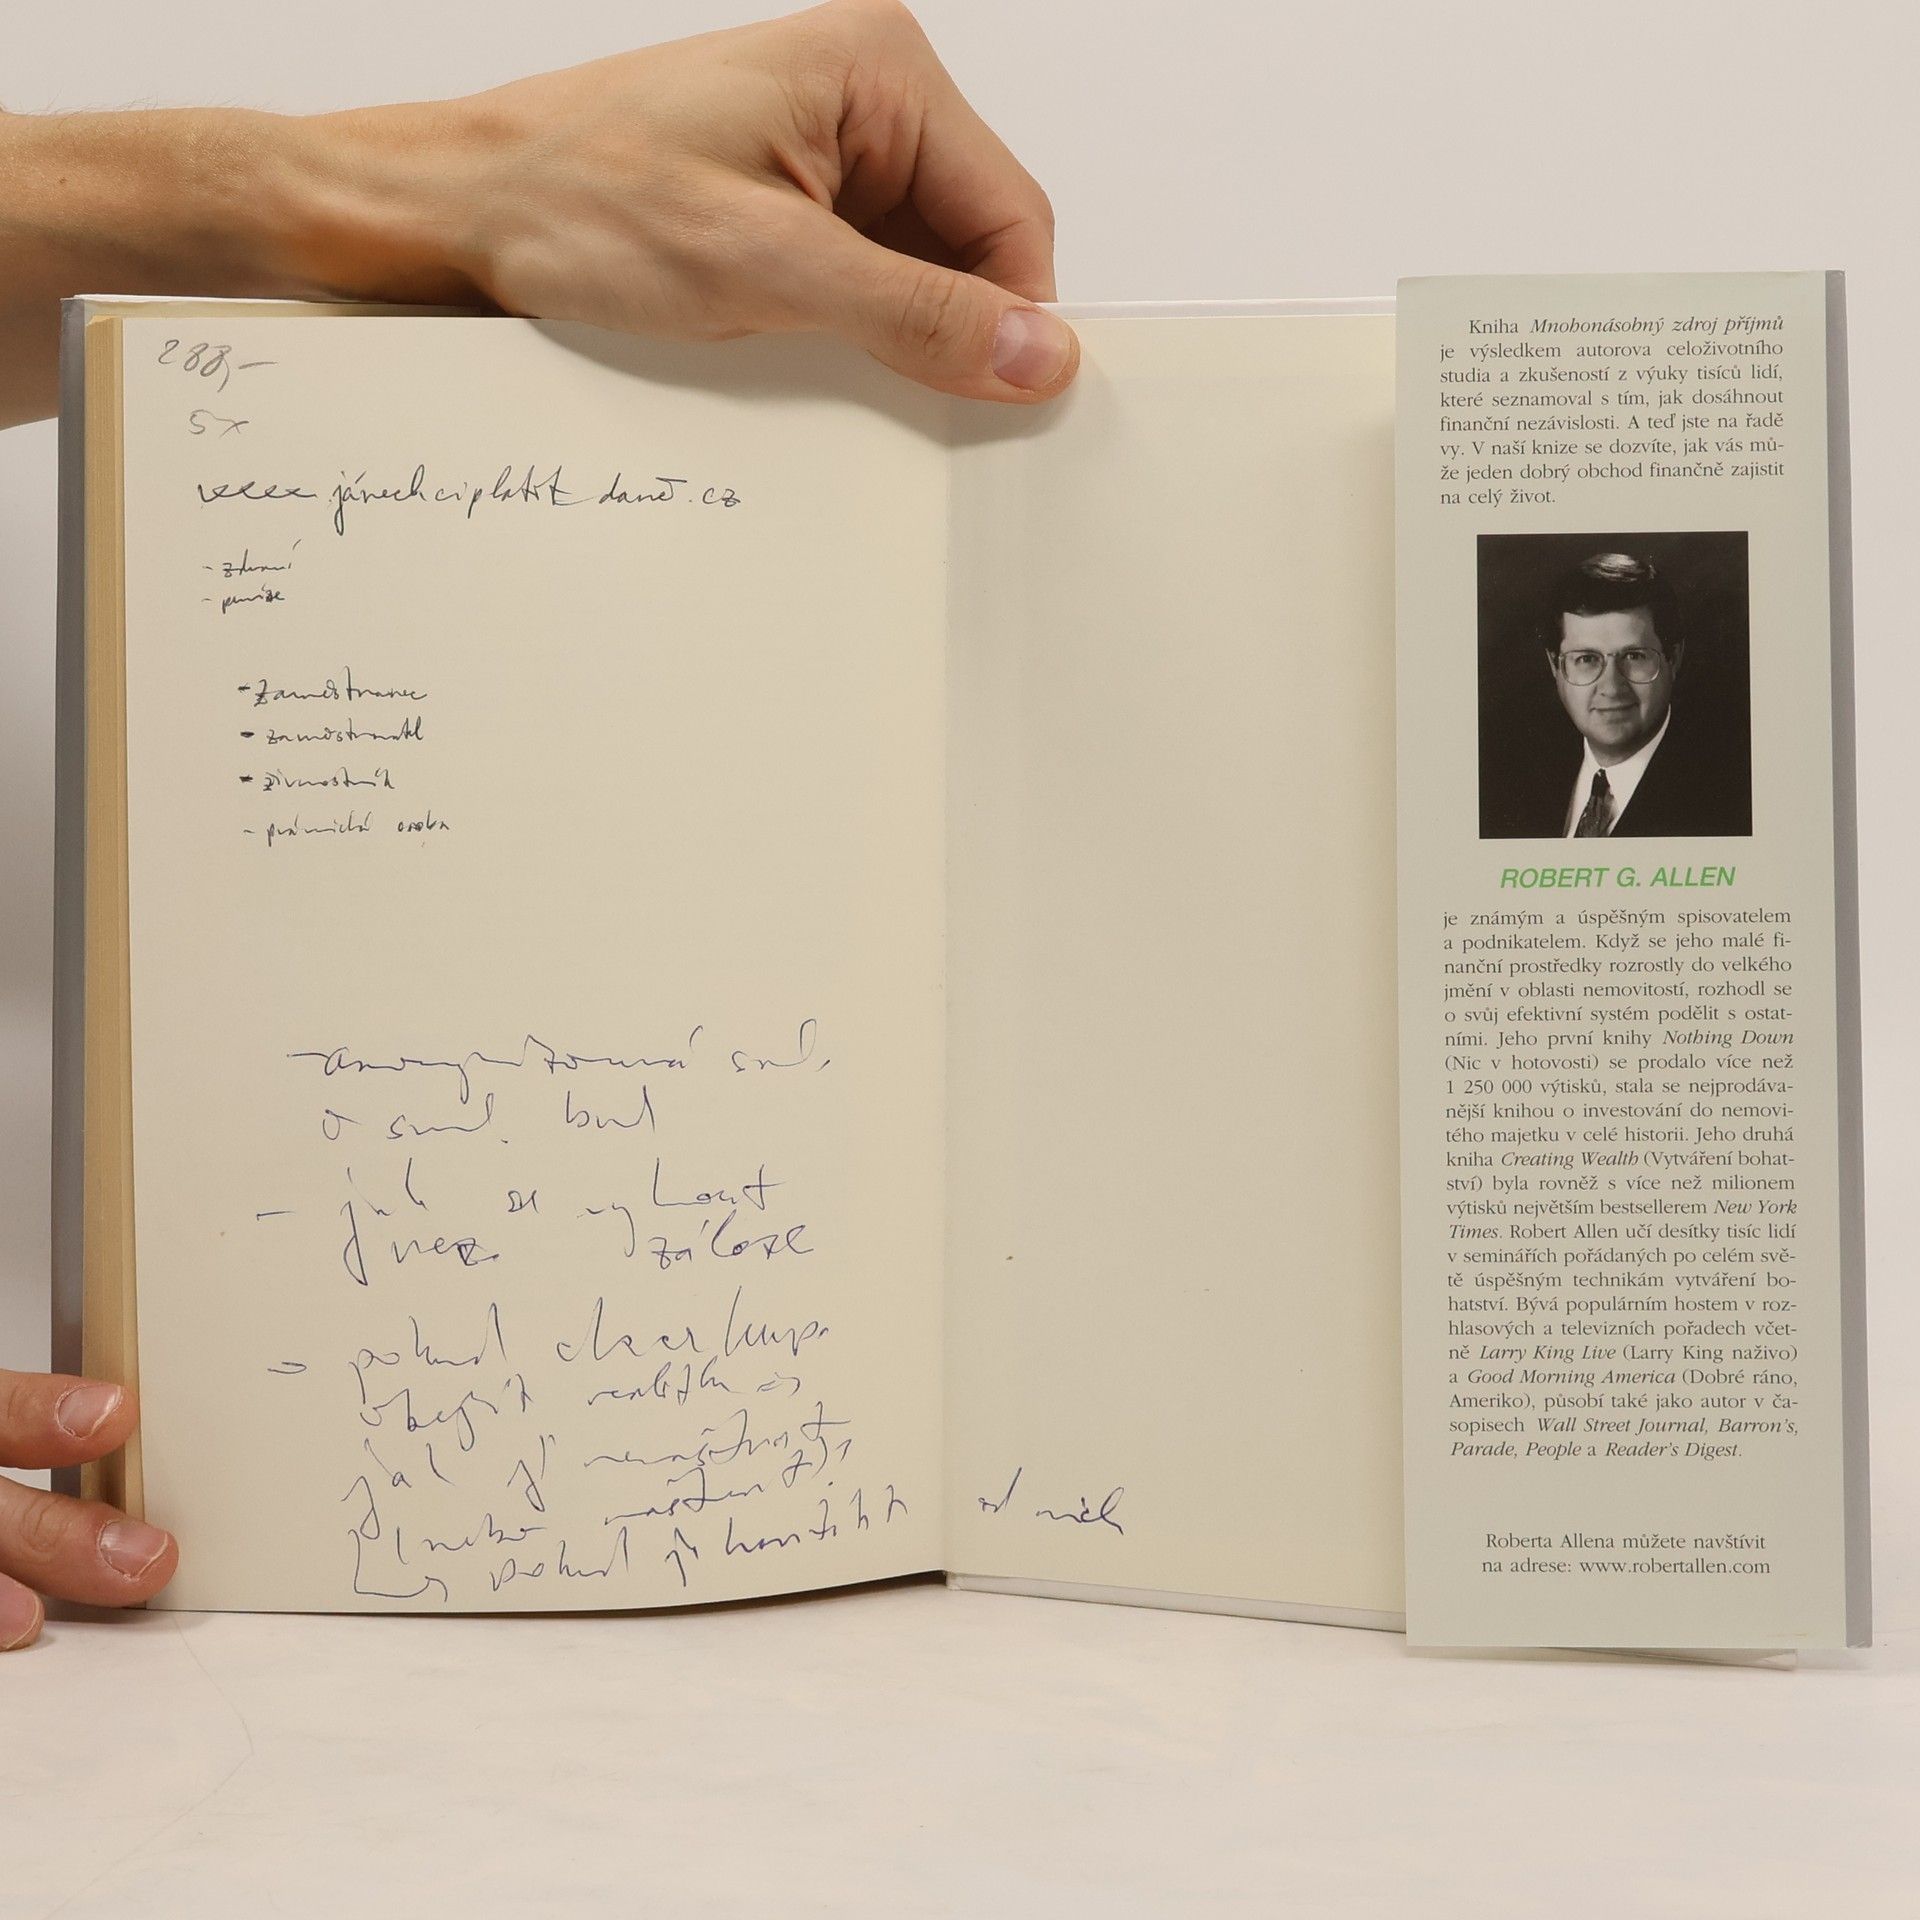 288,-
5x
jánechciplatit daně.cz
- zdraví
- peníze
- zaměstnanec
- zaměstnavatel
- živnostník
- právnická osoba
o sml. bud
- jak se vyhout
záloze
- pokud
nebo
pokud je
od nich
Kniha Mnohonásobný zdroj příjmů
je výsledkem autorova celoživotního
studia a zkušeností z výuky tisíců lidí,
které seznamoval s tím, jak dosáhnout
finanční nezávislosti. A teď jste na řadě
vy. V naší knize se dozvíte, jak vás mů-
že jeden dobrý obchod finančně zajistit
na celý život.
ROBERT G. ALLEN
je známým a úspěšným spisovatelem
a podnikatelem. Když se jeho malé fi-
nanční prostředky rozrostly do velkého
jmění v oblasti nemovitostí, rozhodl se
o svůj efektivní systém podělit s ostat-
ními. Jeho první knihy Nothing Down
(Nic v hotovosti) se prodalo více než
1 250 000 výtisků, stala se nejprodáva-
nější knihou o investování do nemovi-
tého majetku v celé historii. Jeho druhá
kniha Creating Wealth (Vytváření bohat-
ství) byla rovněž s více než milionem
výtisků největším bestsellerem New York
Times. Robert Allen učí desítky tisíc lidí
v seminářích pořádaných po celém svě-
tě úspěšným technikám vytváření bo-
hatství. Bývá populárním hostem v roz-
hlasových a televizních pořadech včet-
ně Larry King Live (Larry King naživo)
a Good Morning America (Dobré ráno,
Ameriko), působí také jako autor v ča-
sopisech Wall Street Journal, Barron's,
Parade, People a Reader's Digest.
Roberta Allena můžete navštívit
na adrese: www.robertallen.com